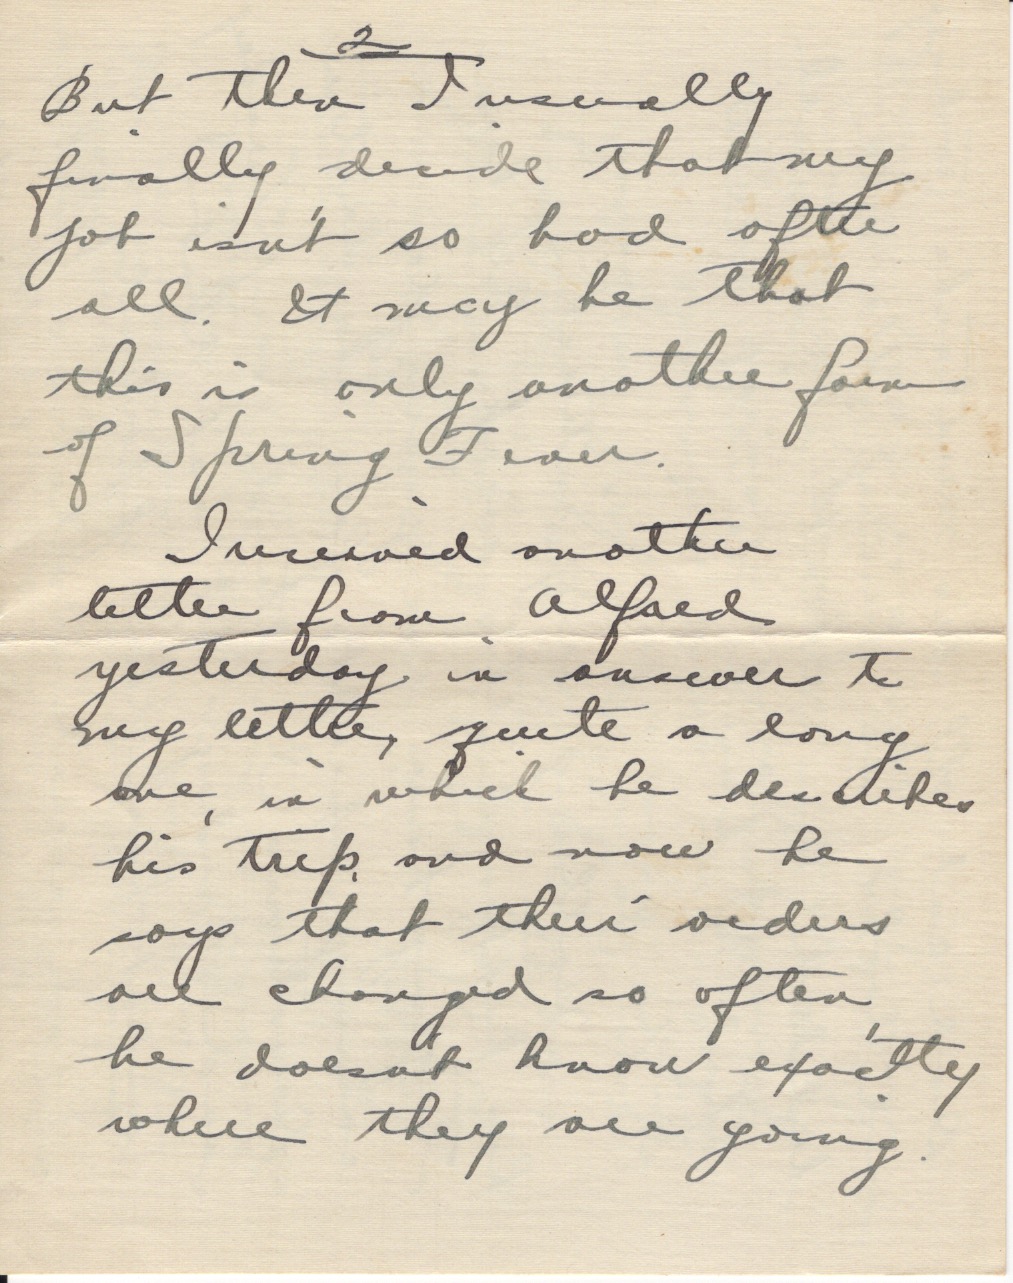 2
But then I usually
finally decide that my
job isn't so bad after
all. It may be that
this is only another form
of Spring Fever.
I received another
letter from Alfred
yesterday in answer to
my letter, quite a long
one, in which he describes
his trip, and now he
says that their orders
are changed so often,
he doesn't know exactly
where they are going.